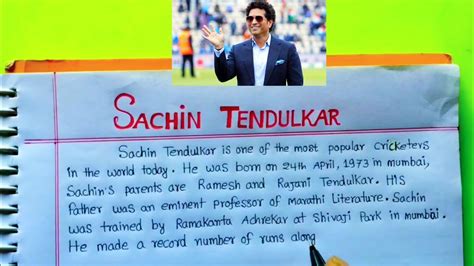 SACHIN TENDULKAR
Sachin Tendulkar is one of the most popular cricketers
in the world today. He was born on 24th April, 1973 in mumbai,
Sachin's parents are Ramesh and Rajani Tendulkar. His
Father was an eminent Professor of Marathi Literature. Sachin
was trained by Ramakanta Achrekar at Shivaji Park in mumbai.
He made a record number of runs along